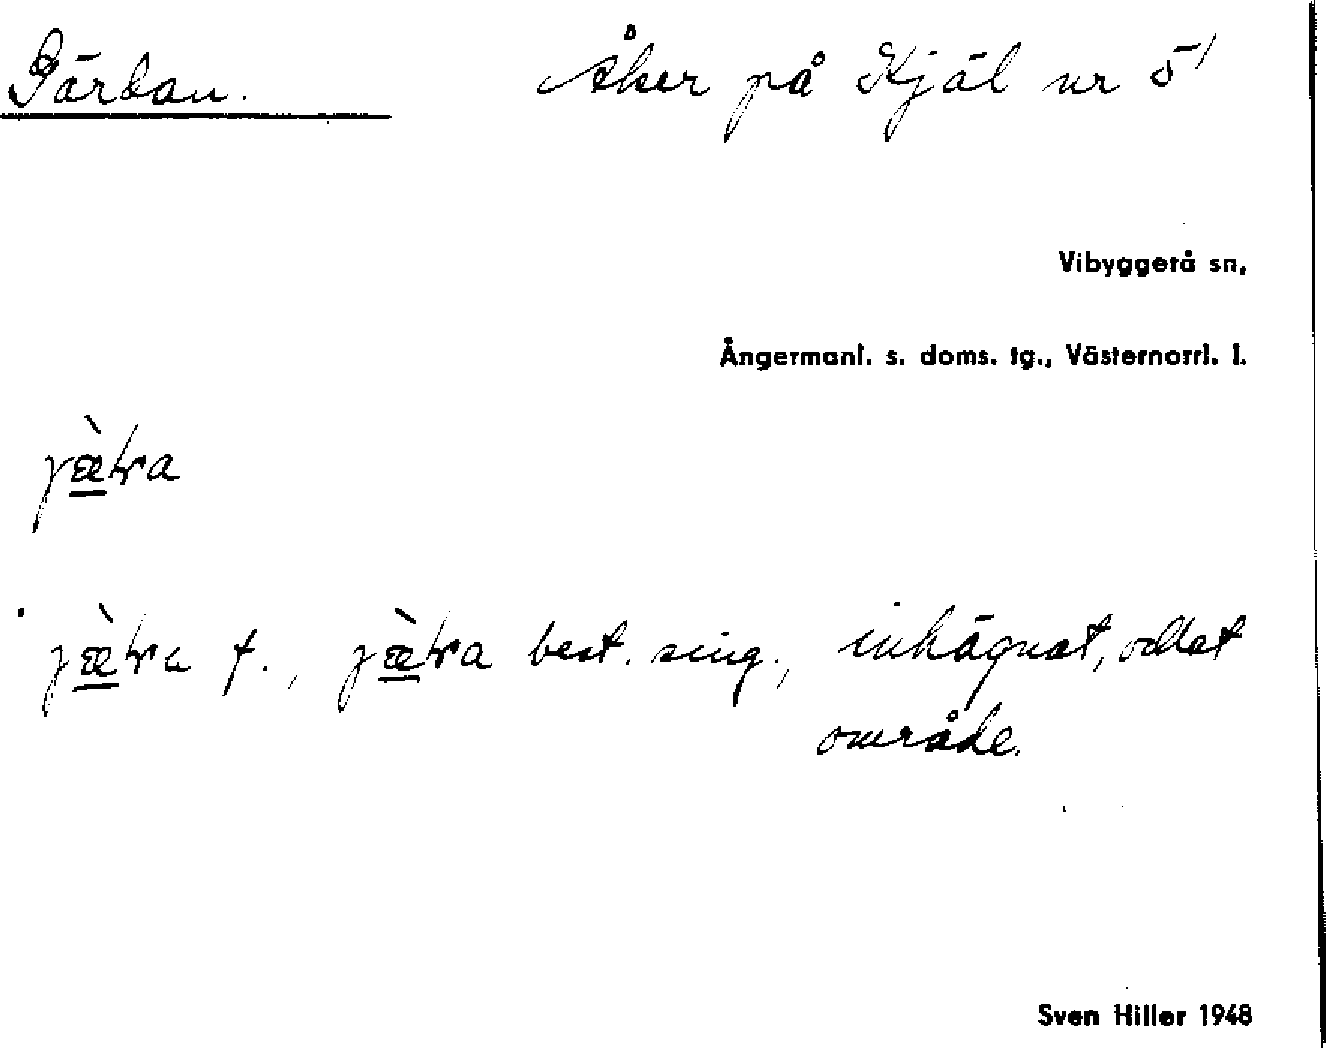 Gärdan. Åker på Kjäl nr 5¹
Vibyggerå sn,
Ångermanl. s. doms. tg., Västernorrl. l.
best. sing., inhägnat, odlat
område.
Sven Hiller 1948